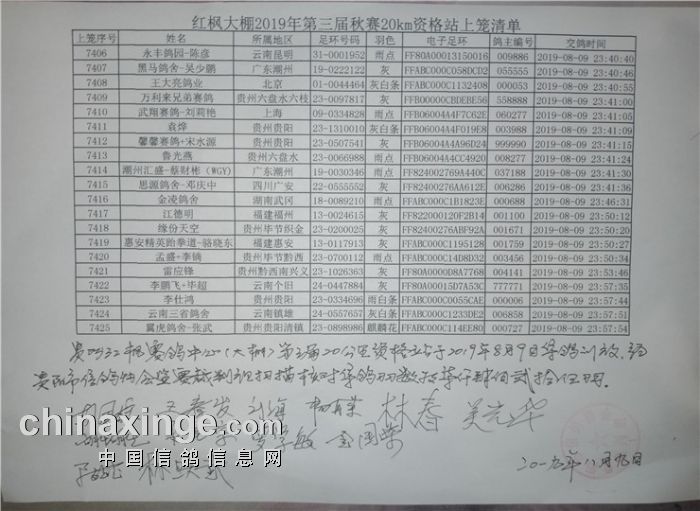 红枫大棚2019年第三届秋赛20km资格站上笼清单
上笼序号 姓名 所属地区 足环号码 羽色 电子足环 鸽主编号 交鸽时间
7406 永丰鸽园-陈彦 云南昆明 31-0001952 雨点 FF80A00013150016 009886 2019-08-09 23:40:40
7407 黑马鸽舍-吴少鹏 广东潮州 19-0222122 灰 FFABC000C058DCD2 055555 2019-08-09 23:40:46
7408 王大亮鸽业 北京 01-0044464 灰白条 FFABC000C1132408 000053 2019-08-09 23:40:55
7409 万利来兄弟赛鸽 贵州六盘水六枝 23-0097817 灰 FFB00000CBDEBE56 558888 2019-08-09 23:41:00
7410 武翔赛鸽-刘莉艳 上海 09-0334828 雨点 FFB06004A4F7C62E 060277 2019-08-09 23:41:05
7411 袁烨 贵州贵阳 23-1310010 灰白条 FFB06004A4F019E8 003988 2019-08-09 23:41:09
7412 馨馨赛鸽-宋水源 贵州贵阳 23-0507541 灰 FFB06004A4A96D24 999990 2019-08-09 23:41:15
7413 鲁光燕 贵州六盘水 23-0066988 雨点 FFB06004A4CC4920 008277 2019-08-09 23:41:24
7414 潮州汇盛-蔡财彬（WGY） 广东潮州 19-0030346 雨点 FF824002769A440C 037188 2019-08-09 23:41:30
7415 思源鸽舍-邓庆中 四川广安 22-0555552 灰 FF824000276AA612E 006286 2019-08-09 23:41:36
7416 金凌鸽舍 湖南武冈 18-0089210 雨点 FFABC000C1B1823E 000688 2019-08-09 23:46:31
7417 江德明 福建福州 13-0024615 灰 FF822000120F2B14 001100 2019-08-09 23:50:12
7418 缘份天空 贵州毕节织金 23-0200025 灰 FF82400276ABF692 001921 2019-08-09 23:50:20
7419 惠安精英跆拳道-骆晓东 福建惠安 13-0117913 灰 FFABC000C1195128 001759 2019-08-09 23:50:27
7420 孟盛+李镝 贵州毕节黔西 23-0700112 雨点 FFABC000C14D8D32 003456 2019-08-09 23:50:34
7421 雷应锋 贵州黔西南兴义 23-1026363 灰 FF80A0000D8A7768 004141 2019-08-09 23:53:46
7422 李鹏飞+毕超 云南个旧 24-0447884 灰 FF80A00015D7A53C 777771 2019-08-09 23:57:35
7423 李仕鸿 贵州贵阳 23-0334696 雨白条 FFABC000C0055CAE 000006 2019-08-09 23:57:44
7424 云南三省鸽舍 云南镇雄 24-0557657 灰白条 FFABC000C1233DE2 006858 2019-08-09 23:57:51
7425 翼虎鸽舍-张武 贵州贵阳清镇 23-0898986 麒麟花 FFABC000C114EE80 000727 2019-08-09 23:57:54
贵州红枫赛鸽中心(大棚)第三届20公里资格站于2019年8月9日集鸽训放，经
贵阳市信鸽协会监赛裁判组扫描核对集鸽羽数柒仟肆佰贰拾伍羽。
林春
金国荣
chinaxinge.com
中国信鸽信息网
二0一九年八月九日